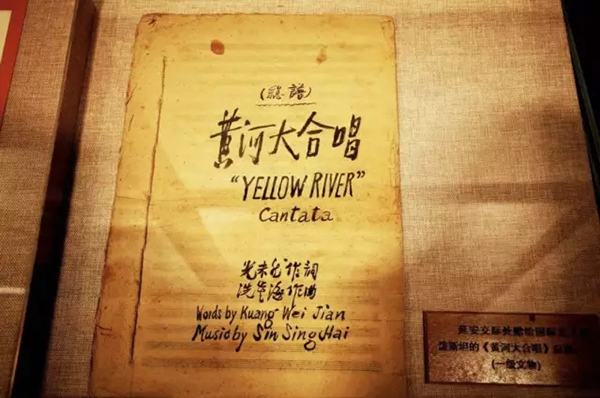 (總譜)
黄河大合唱
"YELLOW RIVER"
Cantata
光未然作詞
洗星海作曲
Words by Kuang Wei Jian
Music by Sin Sing Hai
延安交际处赠给国际友人
盖斯坦的《黄河大合唱》
(一级文物)